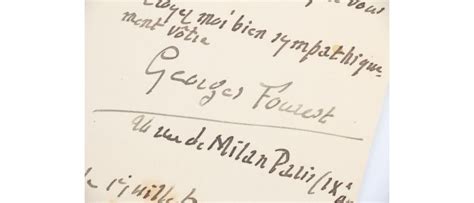 Croyez moi bien sympathique
ment vôtre
Georges Fourest
rue de Milan Paris (IXe
juillet